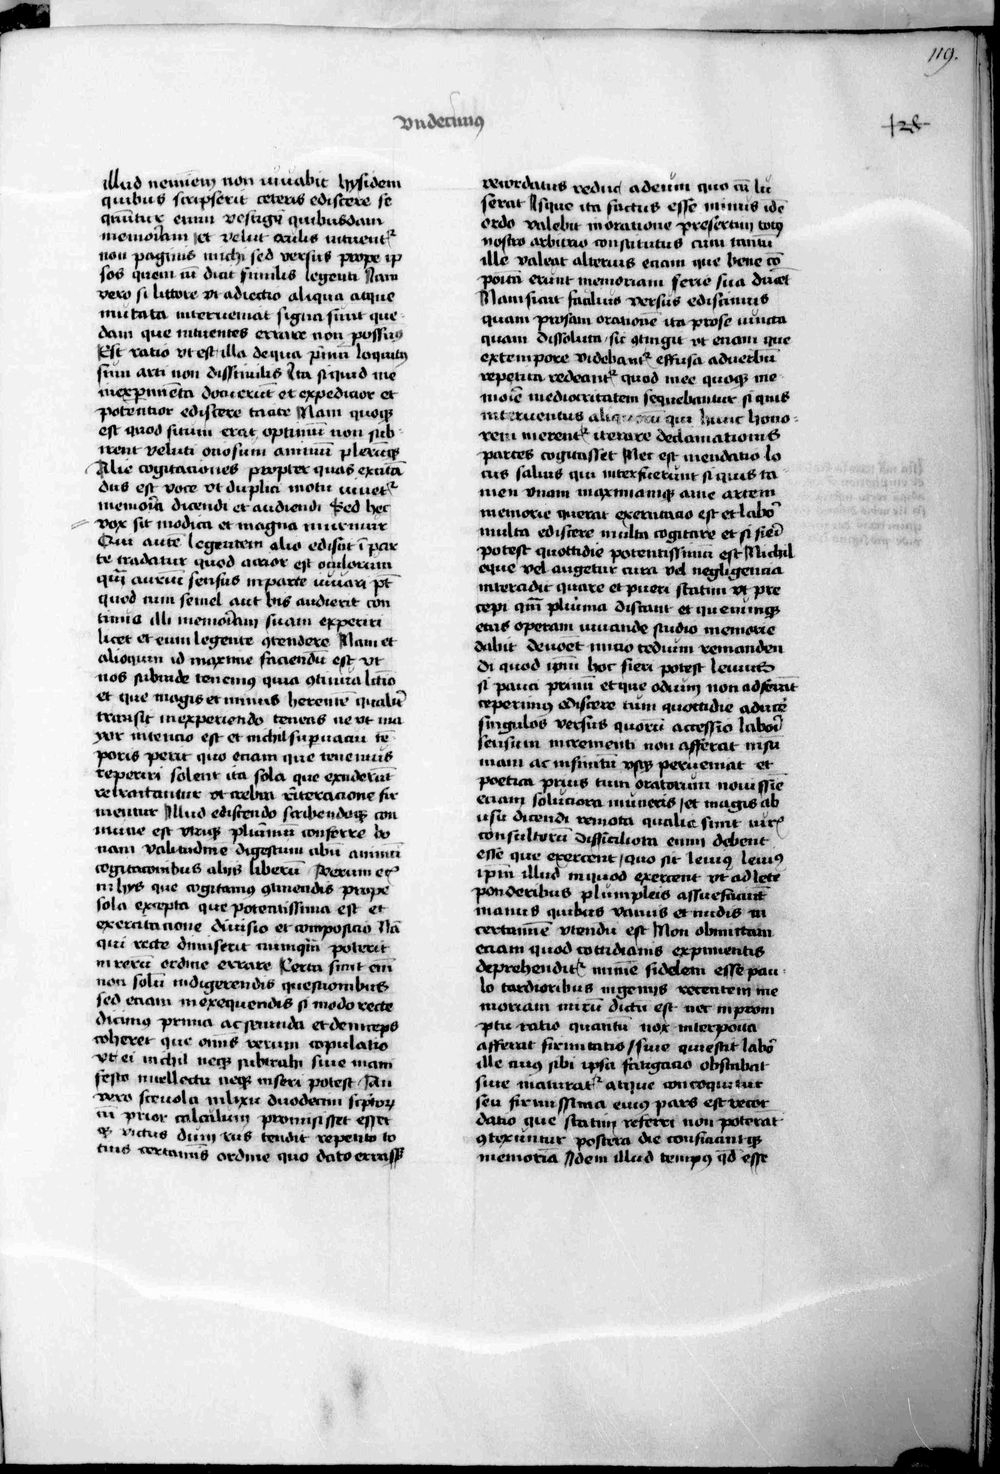 119.
Vndecimus
illud neminem non iuuabit hysidem
quibus scripserit ceteris ediscere se
quitur enim vestigijs quibusdam
memoriam et velut oculis intuentur
non paginas michi sed versus prope ip
sos quem cum dicit similis legenti Nam
vero si litture vt adiectio aliqua atque
mutata interueniat signa sunt que
dam que intuentes errare non possumus
Est ratio vt est illa de qua primum loquutus
sum arti non dissimilis Ita siquid me
inexperimenta docuerunt et expeditior et
potentior ediscere tacite Nam quoque
est quod situm erat optimum non sub
irent veluti ociosum animum plerumque
Alie cogitationes propter quas excitan
dus est voce vt duplici motu iuuetur
memoria dicendi et audiendi Sed hec
vox sit modica et magna murmur
Qui autem legentem alio ediscit in par
te tradatur quod acrior est oculorum
quam aurium sensus in parte iuuari potest
quod cum semel aut bis audierit con
tinua illi memoriam suam experiri
licet et eum legente contendere Nam et
alioquin id maxime faciendum est vt
nos subinde tenemus quia continua lectio
et que magis et minus herentem equaliter
transit in experiendo teneas ne vt ma
yor intencio est et michil superuacui tem
poris perit quo etiam que tenemus
reperiri solent ita sola que exciderunt
retractantur vt crebra reiteracione fir
mentur Illud ediscendo scribendoque com
mune est vtrique plurimum conferre bo
nam valitudinem digestum cibum animum
cogitationibus alijs liberum Verum et
in hijs que cogitamus continendis prope
sola excepta que potentissima est et
exercitatione diuisio et composicio Nam
qui recte diuiserit numquam poterit
in rerum ordine errare Certa sunt enim
non solum indigerendis questionibus
sed etiam in exequendis si modo recte
dicimus prima ac secunda et deinceps
coheret que omnis rerum copulatio
vt ei michil neque subtrahi siue mani
festo intellectu neque inseri potest An
vero sceuola in lixu duodecim scriptorum
cum prior calculum promisisset esset
que victus dum rus tendit repetito to
tius certaminis ordine quo dato errasset
recordatus redijt ad eum quo cum lu
serat Isque ita factus esse minus idem
ordo valebit in oratione presertim totus
nostro arbitrio constitutus cum tantum
ille valeat alterius etiam que bene com
posita erunt memoriam serie sua ducet
Nam sicut facilius versus ediscimus
quam prosam orationem ita prose iuncta
quam dissoluta sic contingit vt etiam que
extempore videbantur effusa aduerbum
repetita redeant quod mee quoque me
morie mediocritatem sequebantur si quis
interuentus aliquorum qui hunc hono
rem merentur iterare declamationis
partes cogitasset Nec est mendatio lo
cus saluis qui interfuerunt si quis ta
men vnam maximamque a me artem
memorie querat exercitatio est et labor
multa ediscere multa cogitare et si fieri
potest quottidie potentissimum est Nichil
eque vel augetur cura vel negligencia
intercidit quare et pueri statim vt pre
cepi quam plurima discant et quecumque
etas operam iuuande studio memorie
dabit deuoret inicio tedium remanden
di quod ipsum hoc fieri potest leuius
si pauca primum et que odium non adferant
ceperimus ediscere tum quottidie adicere
singulos versus quorum accessio labori
sensum incrementi non afferat in sum
mam ac infinitum vsque perueniat et
poetica prius tum oratorum nouissime
etiam solutiora numeris et magis ab
vsu dicendi remota qualia sunt iuris
consultorum Difficiliora enim debent
esse que exercent quo sit leuius leuius
ipsum illud in quod exercent vt ad lete
ponderibus plumpleis assuefaciunt
manus quibus vanus et nudis in
certamine vtendum est Non obmittam
etiam quod cottidianis experimentis
deprehenditur minime fidelem esse pau
lo tardioribus ingenijs recentem me
moriam mirum dictu est nec in prom
ptu ratio quantum nox interposita
afferat firmitatis siue quiescit labor
ille cuius sibi ipsa fatigatio obstabat
siue maturatur atque concoquitur
seu firmissima eius pars est recor
datio que statim referri non poterat
contexuntur postera die confirmantque
memoria Idem illud tempus quod esse